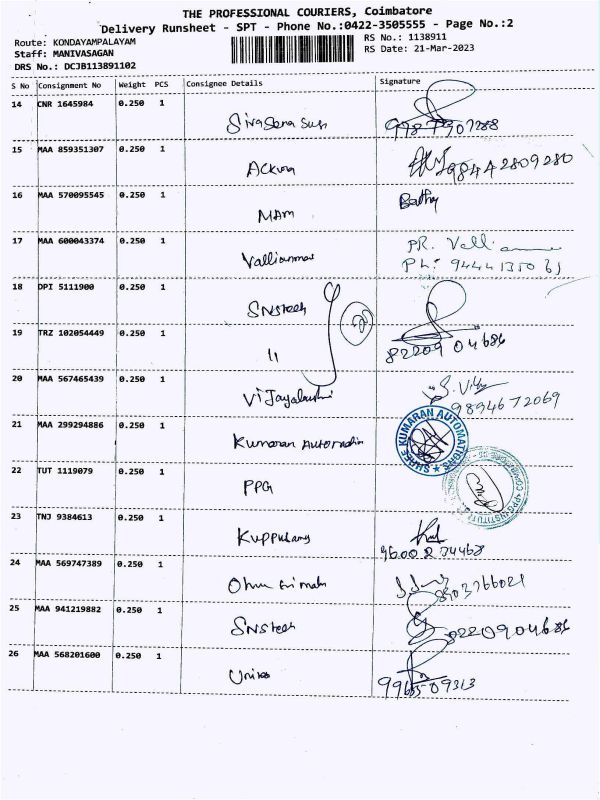 THE PROFESSIONAL COURIERS, Coimbatore
Delivery Runsheet - SPT - Phone No.:0422-3505555 - Page No.:2
Route: KONDAYAMPALAYAM
Staff: MANIVASAGAN
DRS No.: DCJB113891102
RS No.: 1138911
RS Date: 21-Mar-2023
S No Consignment No Weight PCS Consignee Details Signature
14 CNR 1645984 0.250 1
15 MAA 859351307 0.250 1 98442809280
16 MAA 570095545 0.250 1 MAM
17 MAA 600043374 0.250 1 Valliammai PR. Valli
Ph:
18 DPI 5111900 0.250 1 SNStech
19 TRZ 102054449 0.250 1 11 82209 04686
20 MAA 567465439 0.250 1 Vijayalakshmi
9894672069
21 MAA 299294886 0.250 1 Kumaran Automation SHREE KUMARAN AUTOMATIONS
22 TUT 1119079 0.250 1 PPG
23 TNJ 9384613 0.250 1
24 MAA 569747389 0.250 1
25 MAA 941219882 0.250 1 SNStech 8220904686
26 MAA 568201600 0.250 1